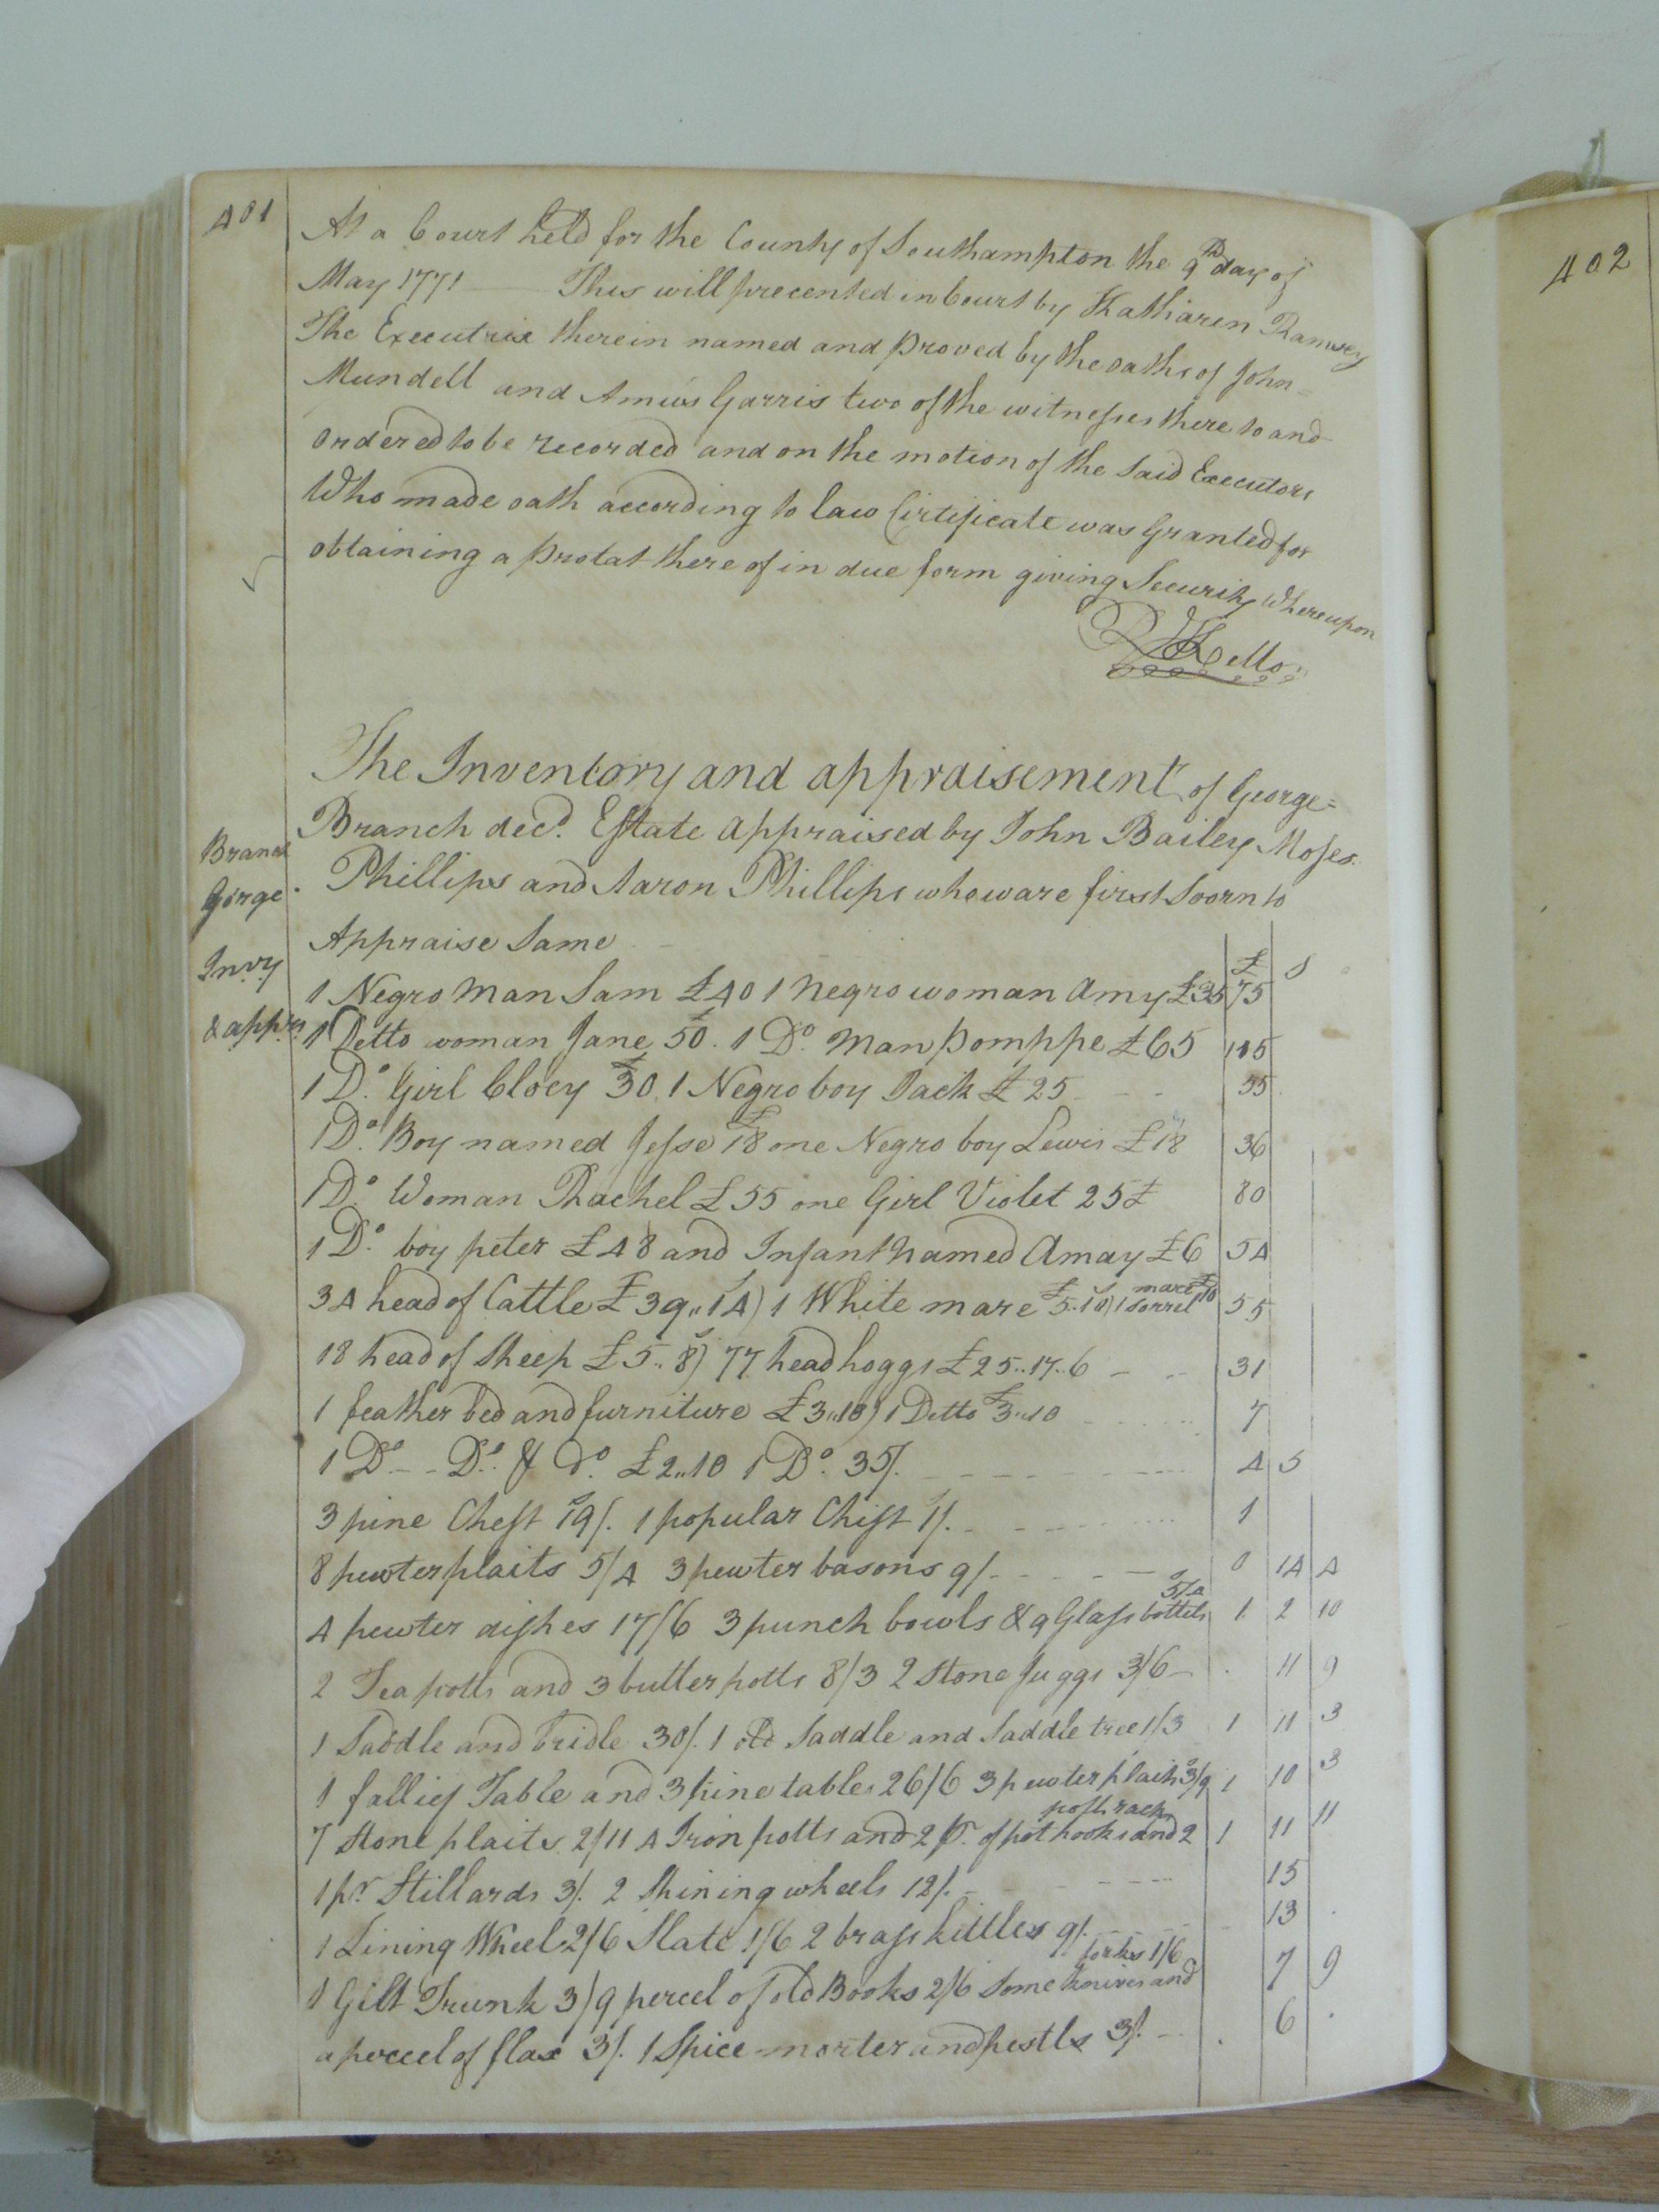 401
At a Court held for the County of Southampton the 9th day of
May 1771 This will precented in Court by Katharen Ramsey
The Executrix therein named and proved by the oaths of John
Mundell and Amius Garris two of the witnesses there to and
Ordered to be recorded and on the motion of the said Executors
Who made oath according to law Cirtificate was Granted for
obtaining a probat there of in due form giving Security Whereupon
R Kello
The Inventory and appraisement of George
Branch decd. Estate appraised by John Bailey Moses
Phillips and Aaron Phillips who ware first Soorn to
Appraise Same
Branch
Gorge
Invy
& apprs
£ S
1 Negro Man Sam £40 1 negro woman Amy £35 75
1 Detto woman Jane £50. 1 Do. Man Pomppe £65 115
1 Do. Girl Cloey £30. 1 Negro boy Jack £25 55
1 Do. Boy named Jesse £18 one Negro boy Lewis £18 36
1 Do. Woman Rachel £55 one Girl Violet 25£ 80
1 Do. boy peter £48 and Infant named Amay £6 54
34 head of Cattle £39,,14) 1 White mare £5.10) 1 sorrel mare £10 55
18 head of Sheep £5..8) 77 head hoggs £25..17..6 31
1 feather bed and furniture £3,,10) 1 Detto £3,,10 7
1 Do. Do. & do. £2,,10 1 Do. 35/. 4 5
3 pine Chest 19/. 1 popular Chist 1/. 1
8 pewter plaits 5/4 3 pewter basons 9/. 0 14 4
4 pewter dishes 17/6 3 punch bowls & 9 Glass bottels 5/4 1 2 10
2 Tea potts and 3 butter potts 8/3 2 Stone Juggs 3/6 11 9
1 Saddle and bridle 30/. 1 old Saddle and Saddle tree 1/3 1 11 3
1 fallieg Table and 3 pine tables 26/6 3 pewter plaits 3/9 1 10 3
7 Stone plaits 2/11 4 Iron potts and 2 pr. of pot hooks and 2 pott racks 1 11 11
1 pr Stillards 3/. 2 Shining wheels 12/. 15
1 Lining Wheel 2/6 Slate 1/6 2 brass kittles 9/. 13
1 Gilt Trunk 3/9 percel of old Books 2/6 Some knives and forks 1/6 7 9
a percel of flax 3/. 1 Spice morter and pestls 3/. 6
402